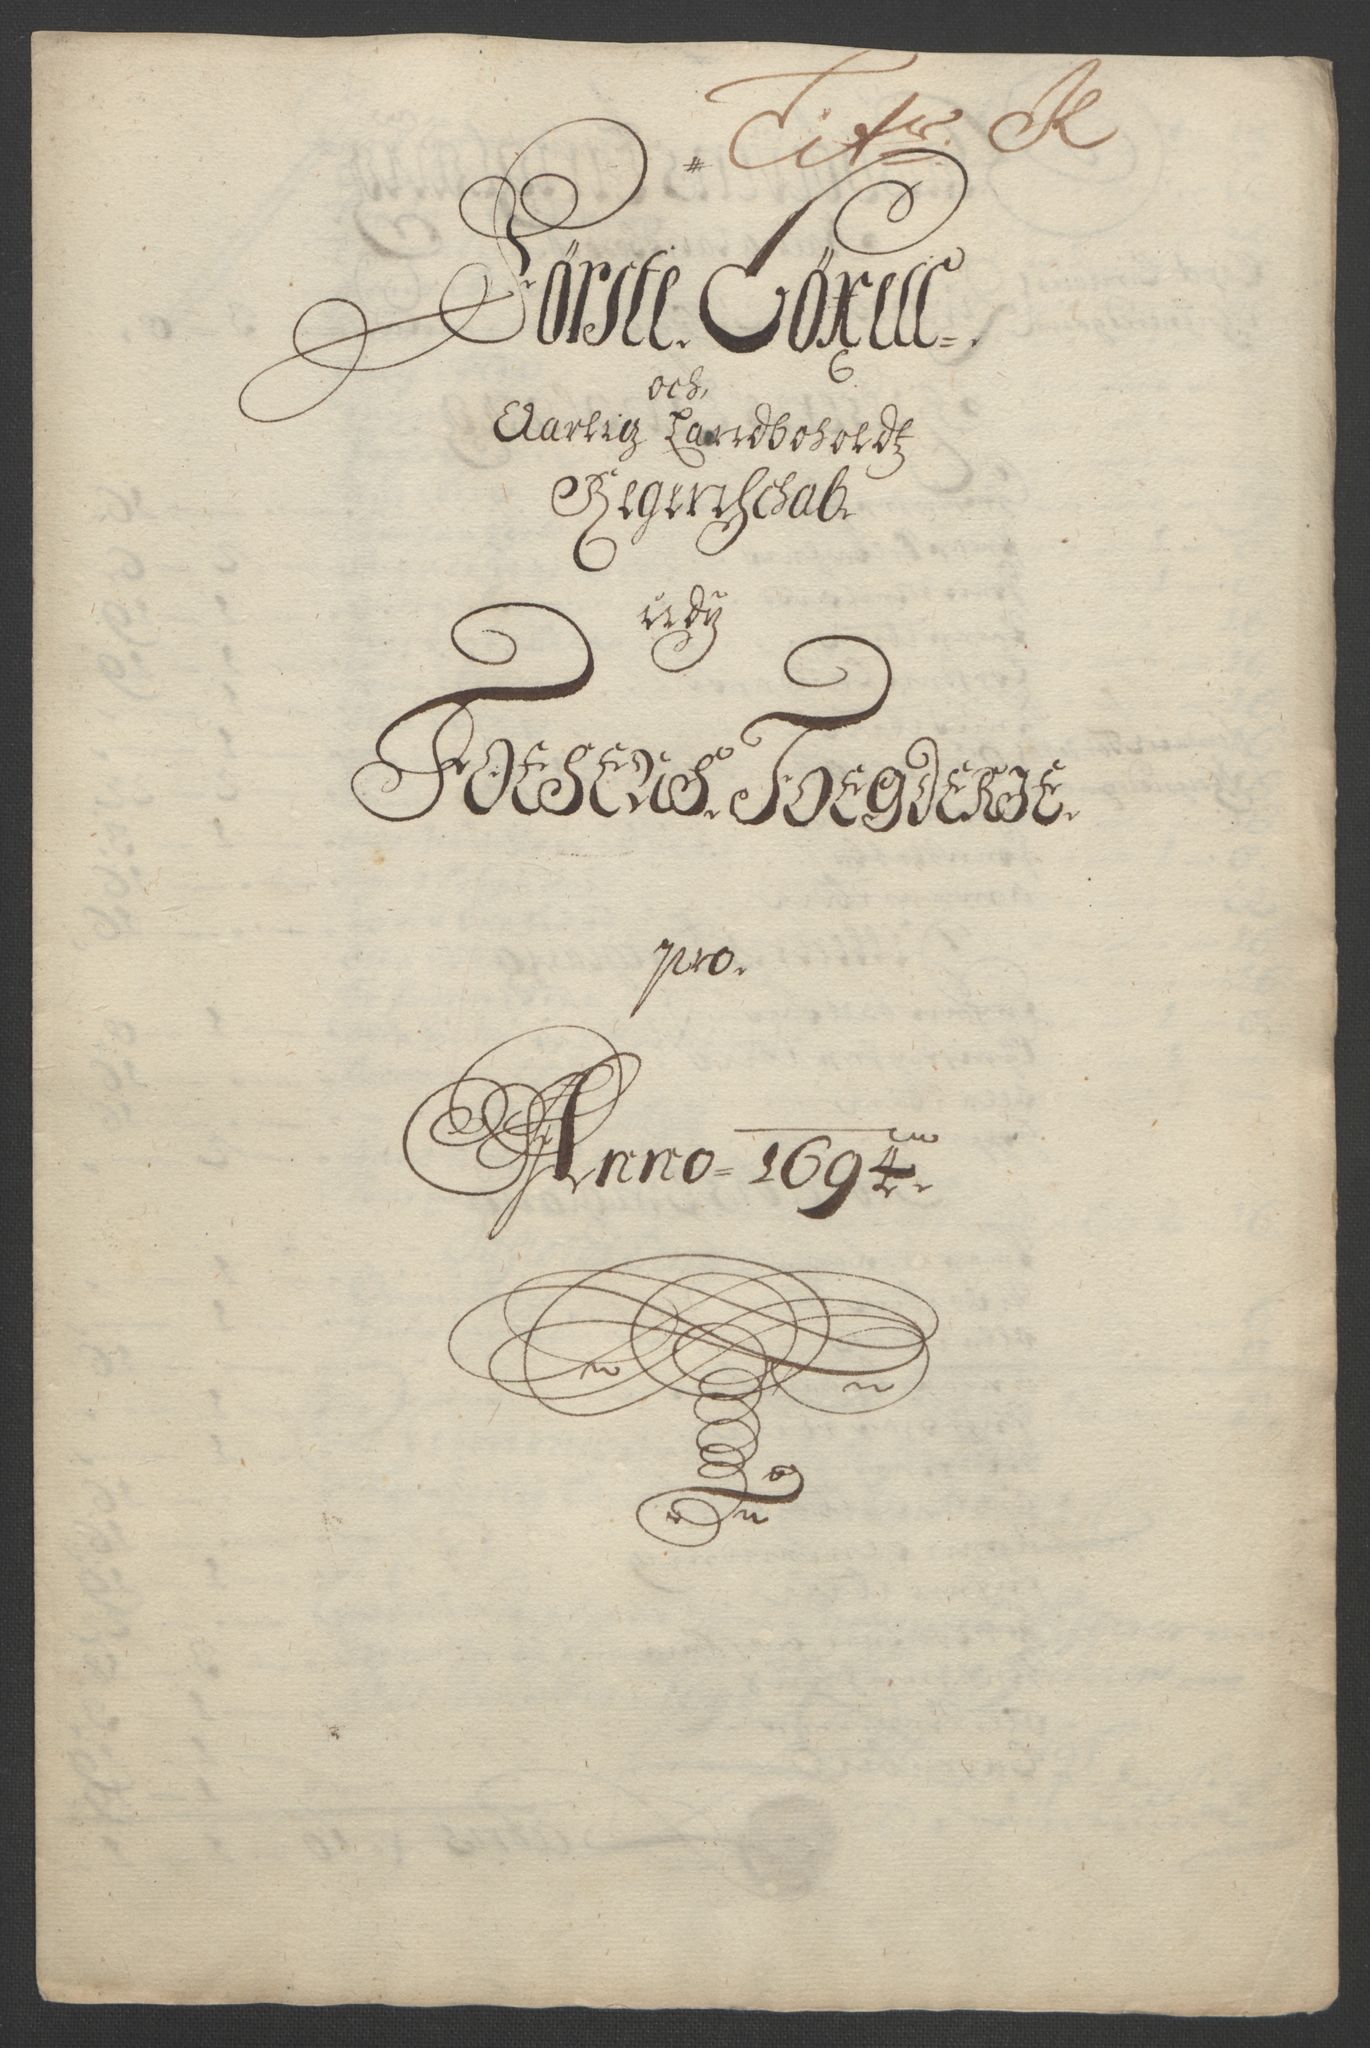 Litr. K
Förste Töxell
och
Aarlig Landboholdtz
Regenschab
udj
Foesens Foegderje.
pro.
Anno = 1694.